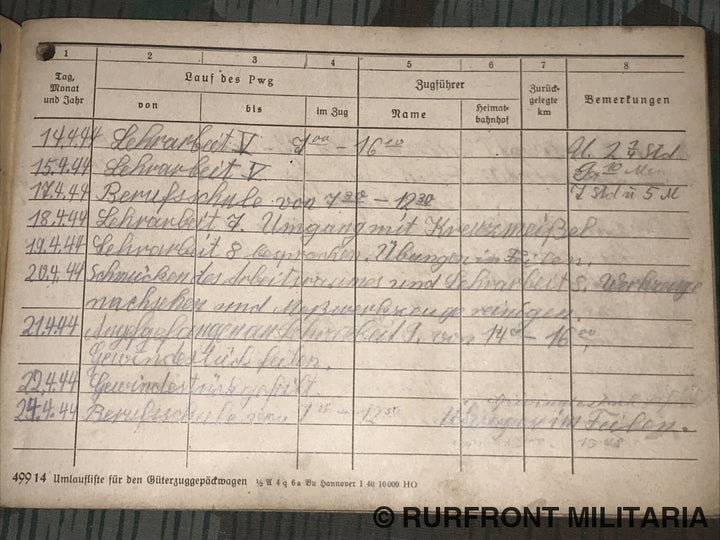 1 2 3 4 5 6 7 8
Tag, Monat und Jahr Lauf des Pwg Zugführer Zurück-gelegte km Bemerkungen
von bis im Zug Name Heimat-bahnhof
14.4.44 Lehrarbeit V 7 00 – 16 10 2 3/4 Std
15.4.44 Lehrarbeit V
17.4.44 Berufsschule von 7 30 – 12 30 7 Std u 5 M
18.4.44 Lehrarbeit 7. Umgang mit Kreuzmeißel
19.4.44 Lehrarbeit 8 besprochen. Übungen im Feilen.
20.4.44 Schmücken des Arbeitsraumes und Lehrarbeit 8. Werkzeuge
nachsehen und Meßwerkzeuge reinigen.
21.4.44 Angefangen an Lehrarbeit 9. von 14 – 16 00
Gewindestück feilen.
22.4.44 Gewindestück gefeilt
24.4.44 Berufsschule von im Feilen.
499 14 Umlaufliste für den Güterzuggepäckwagen ½ A 4 q 6a Bu Hannover I 40 10 000 HO
© RURFRONT MILITARIA